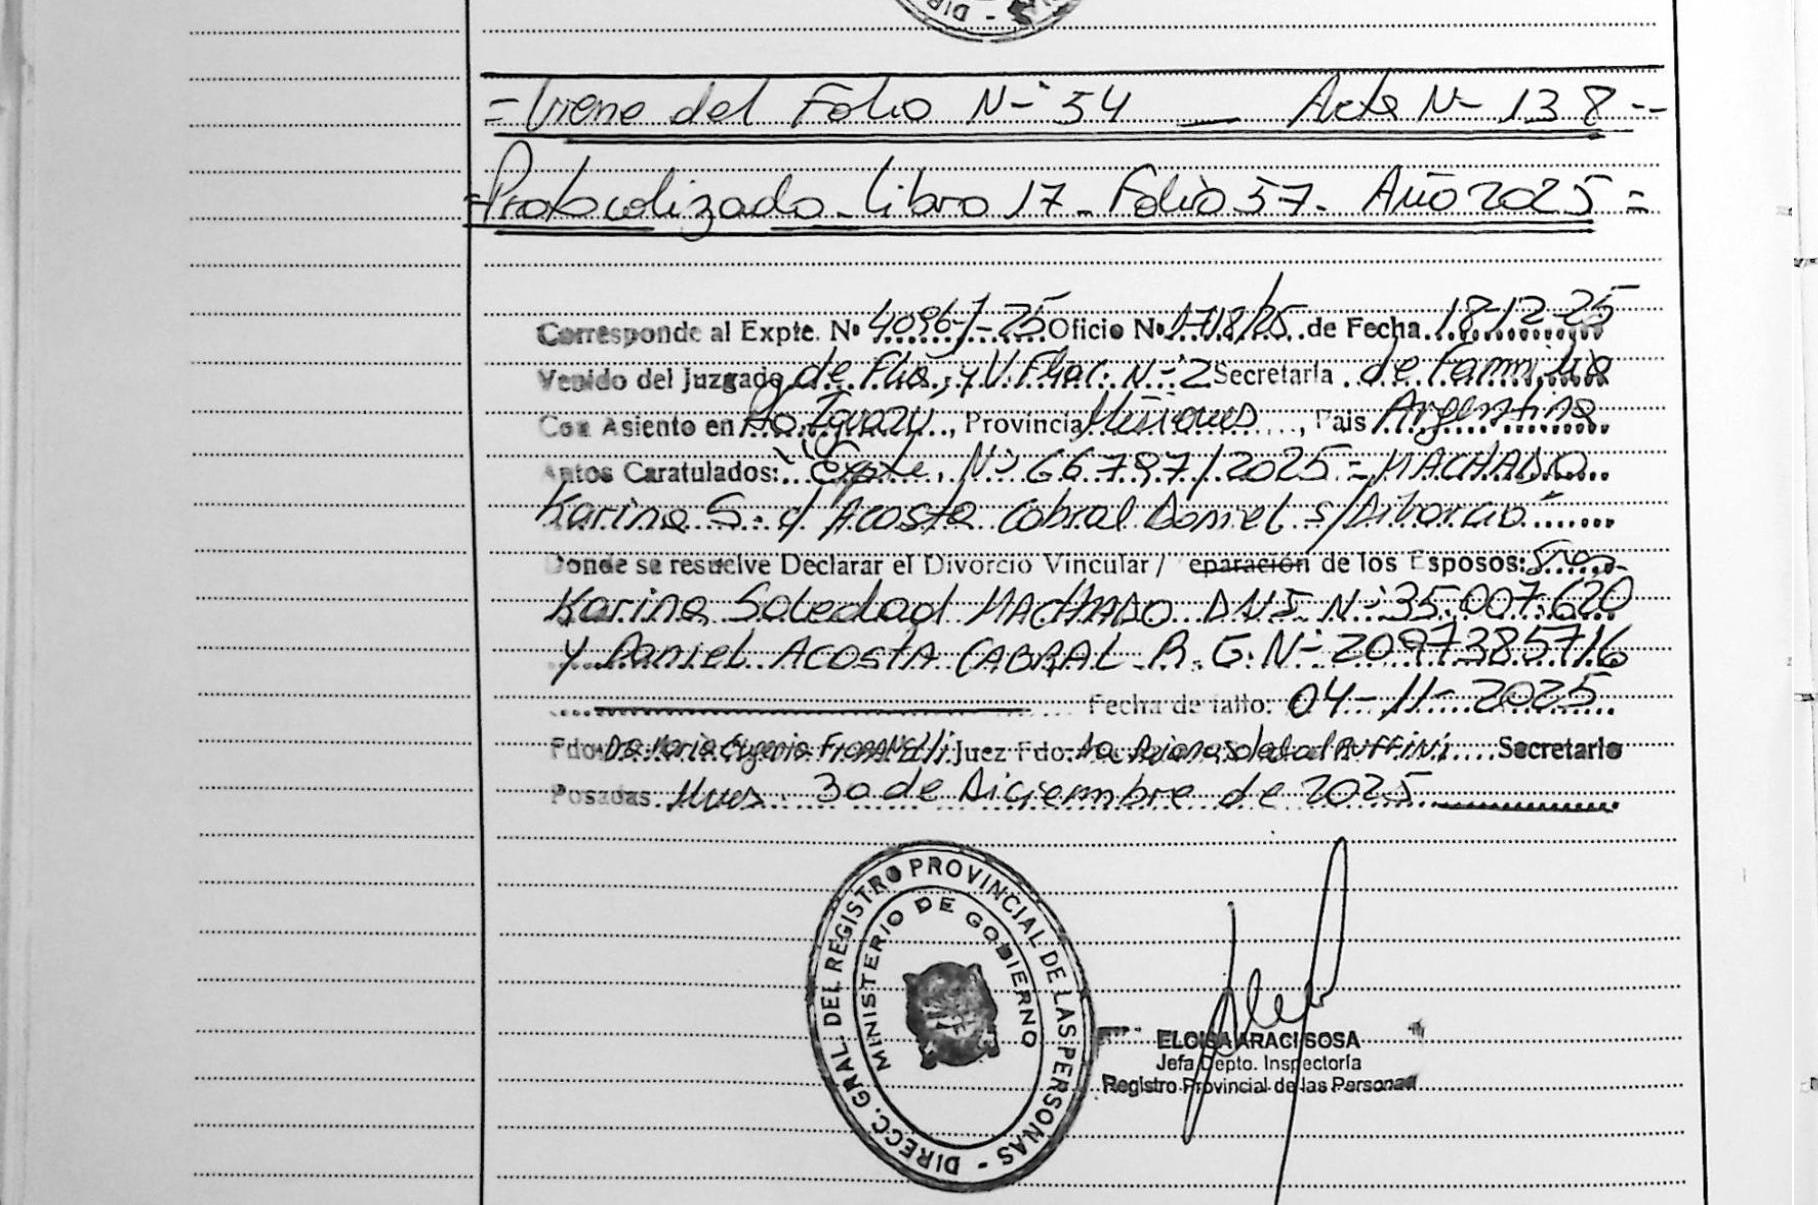 = Viene del Folio N-° 54 — Acta N- 138 --
= Protocolizado - Libro 17 - Folio 57 - Año 2025 =
Corresponde al Expte. Nº 4096-J-25 Oficio Nº 1718/25 de Fecha 18-12-25
Venido del Juzgado de Flia, y V. Fliar. N-° 2 Secretaría de Familia
Con Asiento en Pto. Iguazú, Provincia Misiones, País Argentina
Autos Caratulados: "Expte. N-° 66.797/2025 = MACHADO
Karina S. c/ Acosta Cabral Daniel s/Divorcio"
Donde se resuelve Declarar el Divorcio Vincular / eparación de los Esposos: Sra.
Karina Soledad MACHADO DNI N-° 35.007.620
y Daniel ACOSTA CABRAL R.G. N-° 2097385716
Fecha de fallo: 04-11-2025
Fdo. Dra. Maria Eugenia Juez Fdo. Dra. Soledad RUFFINI Secretario
Posadas, Mnes. 30 de Diciembre de 2025
DIRECC. GRAL. DEL REGISTRO PROVINCIAL DE LAS PERSONAS -
MINISTERIO DE GOBIERNO
ELOISA ARACI SOSA
Jefa Depto. Inspectoría
Registro Provincial de las Personas